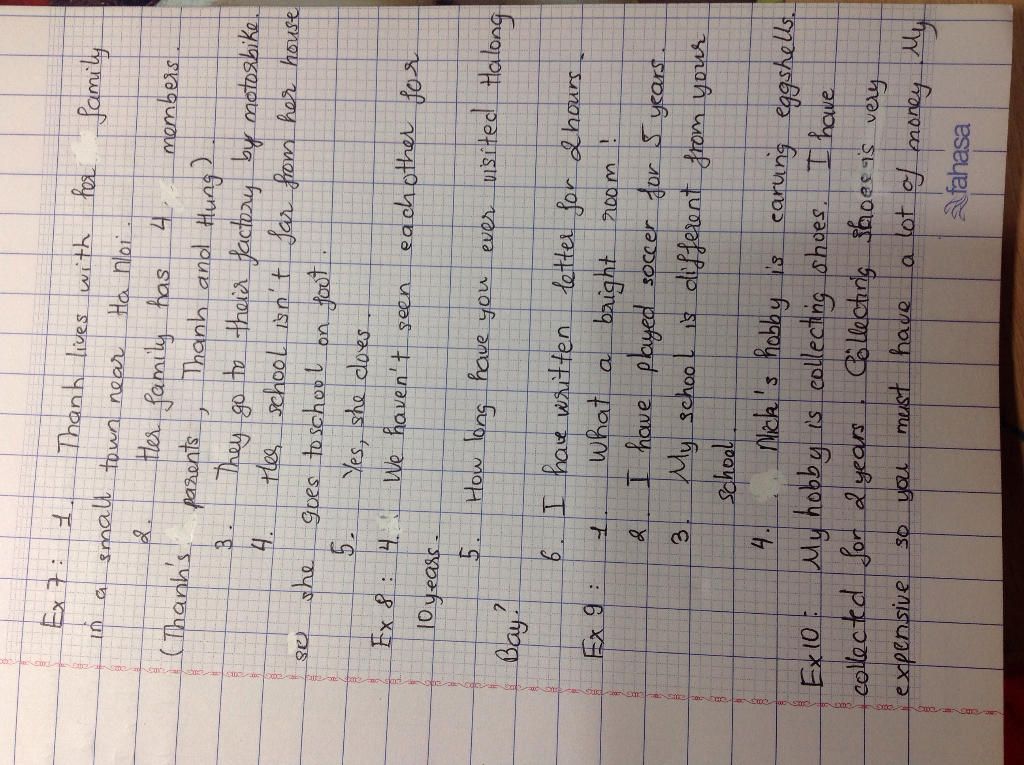 Ex 7 : 1. Thanh lives with her family
in a small town near Ha Noi.
2. Her family has 4 members.
(Thanh's parents, Thanh and Hung)
3. They go to their factory by motorbike.
4. Her school isn't far from her house
so she goes to school on foot.
5. Yes, she does.
Ex 8 : 4. We haven't seen eachother for
10 years.
5. How long have you ever visited Halong
Bay?
6. I have written letter for 2 hours.
Ex 9 : 1. What a bright room!
2. I have played soccer for 5 years.
3. My school is different from your
school.
4. Nick's hobby is carving eggshells.
Ex 10 : My hobby is collecting shoes. I have
collected for 2 years. Collecting shoes is very
expensive so you must have a lot of money. My
fahasa